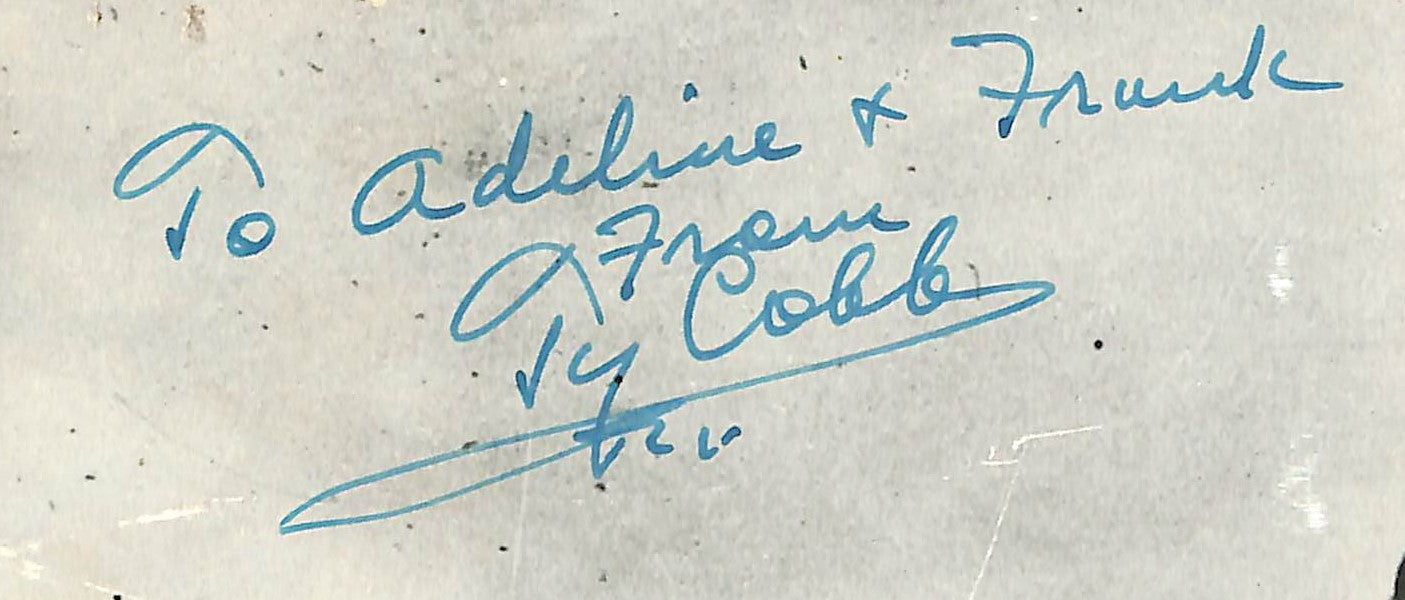 To Adeline & Frank
From
Ty Cobb